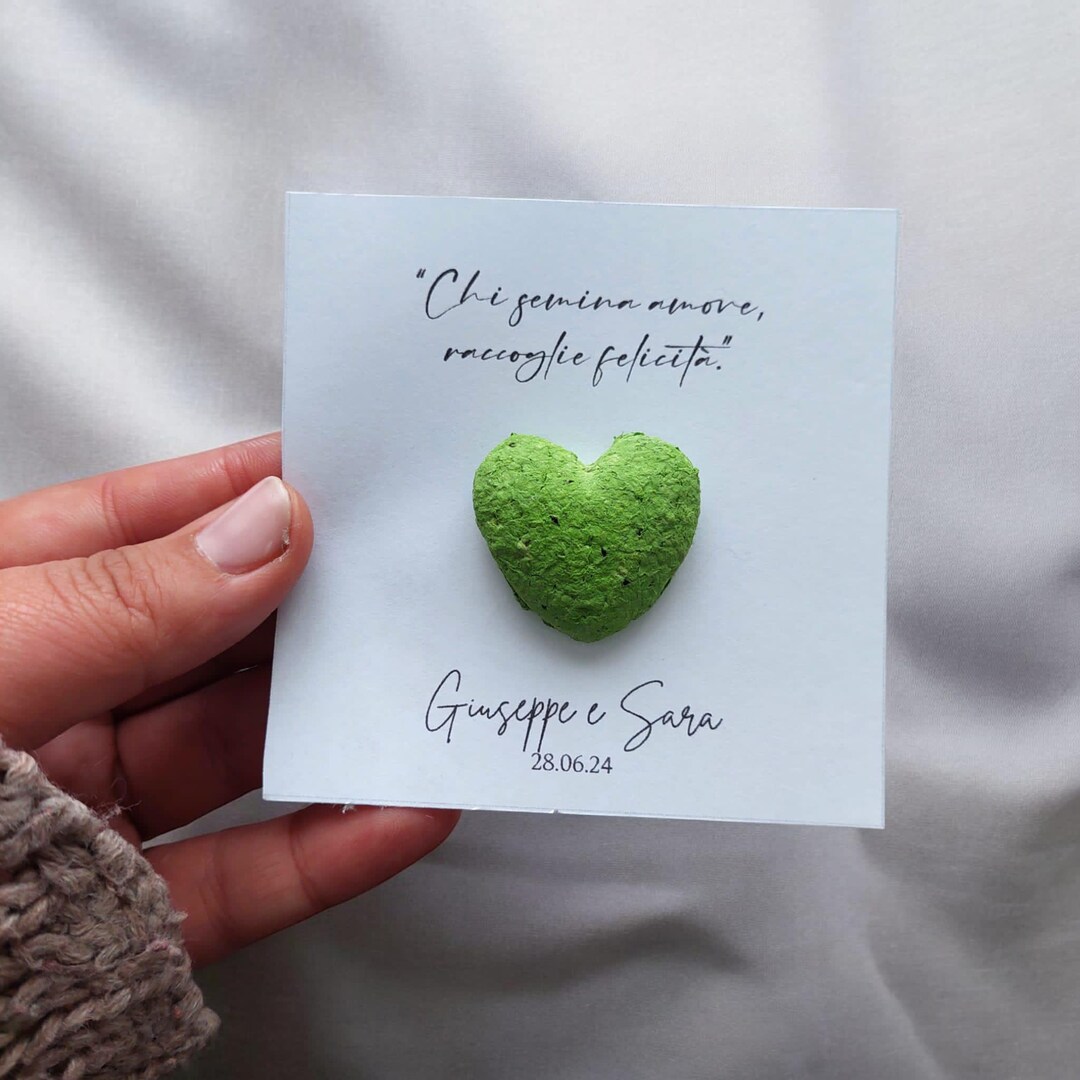 "Chi semina amore,
raccoglie felicità."
Giuseppe e Sara
28.06.24